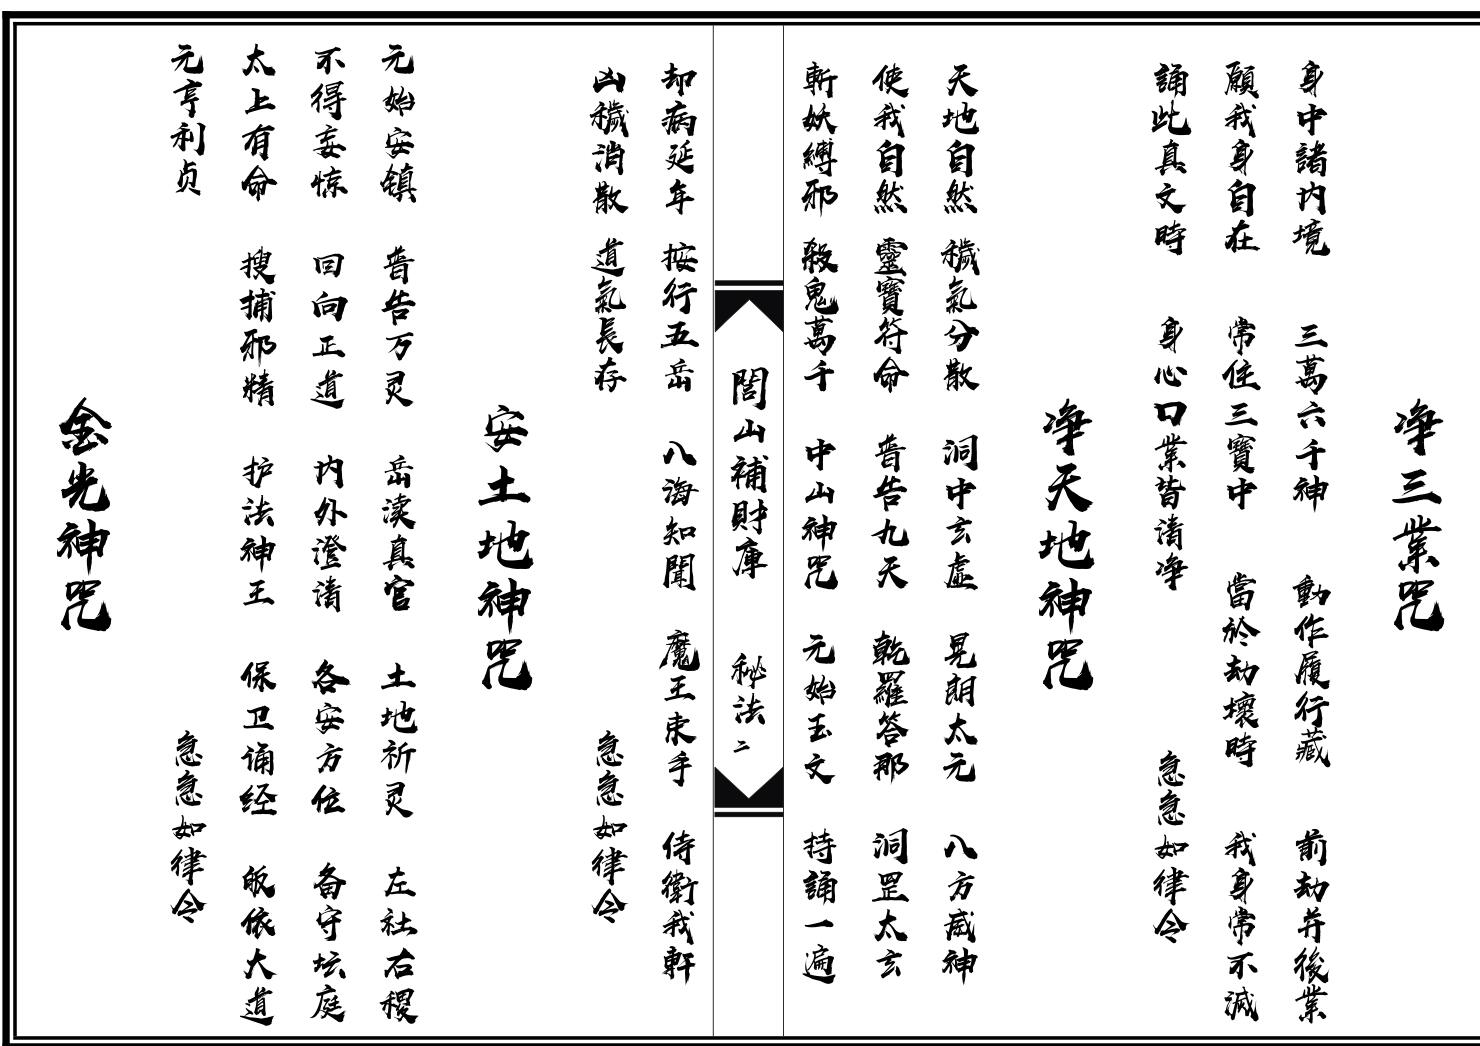 净三業咒
身中諸内境 三萬六千神 動作履行藏 前劫并後業
願我身自在 常住三寶中 當於劫壞時 我身常不滅
誦此真文時 身心口業皆清净 急急如律令
净天地神咒
天地自然 穢氣分散 洞中玄虛 晃朗太元 八方威神
使我自然 靈寶符命 普告九天 乾羅答那 洞罡太玄
斬妖縛邪 殺鬼萬千 中山神咒 元始玉文 持誦一遍
閭山補財庫 秘法 二
却病延年 按行五岳 八海知聞 魔王束手 侍衛我軒
凶穢消散 道氣長存 急急如律令
安土地神咒
元始安镇 普告万灵 岳渎真官 土地祈灵 左社右稷
不得妄惊 回向正道 内外澄清 各安方位 备守坛庭
太上有命 搜捕邪精 护法神王 保卫诵经 皈依大道
元亨利贞 急急如律令
金光神咒